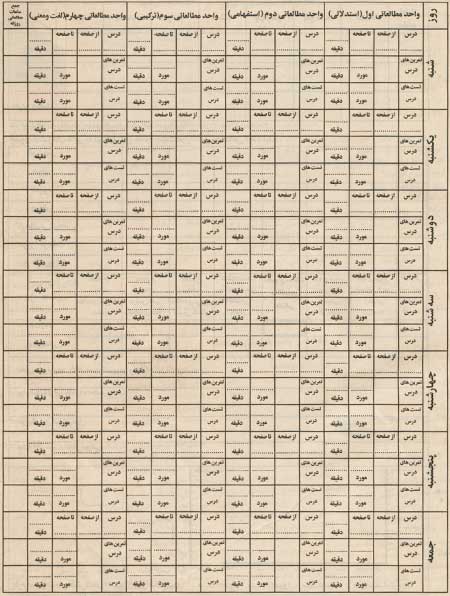 روز واحد مطالعاتی اول(استدلالی) واحد مطالعاتی دوم (استفهامی) واحد مطالعاتی سوم(ترکیبی) واحد مطالعاتی چهارم(لغت ومعنی) جمع ساعات مطالعاتی روزانه
شنبه
درس از صفحه تا صفحه دقیقه درس از صفحه تا صفحه دقیقه درس از صفحه تا صفحه دقیقه درس از صفحه تا صفحه دقیقه
تمرین های درس مورد دقیقه تمرین های درس مورد دقیقه تمرین های درس مورد دقیقه تمرین های درس مورد دقیقه
تست های درس مورد دقیقه تست های درس مورد دقیقه تست های درس مورد دقیقه تست های درس مورد دقیقه
یکشنبه
درس از صفحه تا صفحه دقیقه درس از صفحه تا صفحه دقیقه درس از صفحه تا صفحه دقیقه درس از صفحه تا صفحه دقیقه
تمرین های درس مورد دقیقه تمرین های درس مورد دقیقه تمرین های درس مورد دقیقه تمرین های درس مورد دقیقه
تست های درس مورد دقیقه تست های درس مورد دقیقه تست های درس مورد دقیقه تست های درس مورد دقیقه
دوشنبه
درس از صفحه تا صفحه دقیقه درس از صفحه تا صفحه دقیقه درس از صفحه تا صفحه دقیقه درس از صفحه تا صفحه دقیقه
تمرین های درس مورد دقیقه تمرین های درس مورد دقیقه تمرین های درس مورد دقیقه تمرین های درس مورد دقیقه
تست های درس مورد دقیقه تست های درس مورد دقیقه تست های درس مورد دقیقه تست های درس مورد دقیقه
سه شنبه
درس از صفحه تا صفحه دقیقه درس از صفحه تا صفحه دقیقه درس از صفحه تا صفحه دقیقه درس از صفحه تا صفحه دقیقه
تمرین های درس مورد دقیقه تمرین های درس مورد دقیقه تمرین های درس مورد دقیقه تمرین های درس مورد دقیقه
تست های درس مورد دقیقه تست های درس مورد دقیقه تست های درس مورد دقیقه تست های درس مورد دقیقه
چهارشنبه
درس از صفحه تا صفحه دقیقه درس از صفحه تا صفحه دقیقه درس از صفحه تا صفحه دقیقه درس از صفحه تا صفحه دقیقه
تمرین های درس مورد دقیقه تمرین های درس مورد دقیقه تمرین های درس مورد دقیقه تمرین های درس مورد دقیقه
تست های درس مورد دقیقه تست های درس مورد دقیقه تست های درس مورد دقیقه تست های درس مورد دقیقه
پنجشنبه
درس از صفحه تا صفحه دقیقه درس از صفحه تا صفحه دقیقه درس از صفحه تا صفحه دقیقه درس از صفحه تا صفحه دقیقه
تمرین های درس مورد دقیقه تمرین های درس مورد دقیقه تمرین های درس مورد دقیقه تمرین های درس مورد دقیقه
تست های درس مورد دقیقه تست های درس مورد دقیقه تست های درس مورد دقیقه تست های درس مورد دقیقه
جمعه
درس از صفحه تا صفحه دقیقه درس از صفحه تا صفحه دقیقه درس از صفحه تا صفحه دقیقه درس از صفحه تا صفحه دقیقه
تمرین های درس مورد دقیقه تمرین های درس مورد دقیقه تمرین های درس مورد دقیقه تمرین های درس مورد دقیقه
تست های درس مورد دقیقه تست های درس مورد دقیقه تست های درس مورد دقیقه تست های درس مورد دقیقه